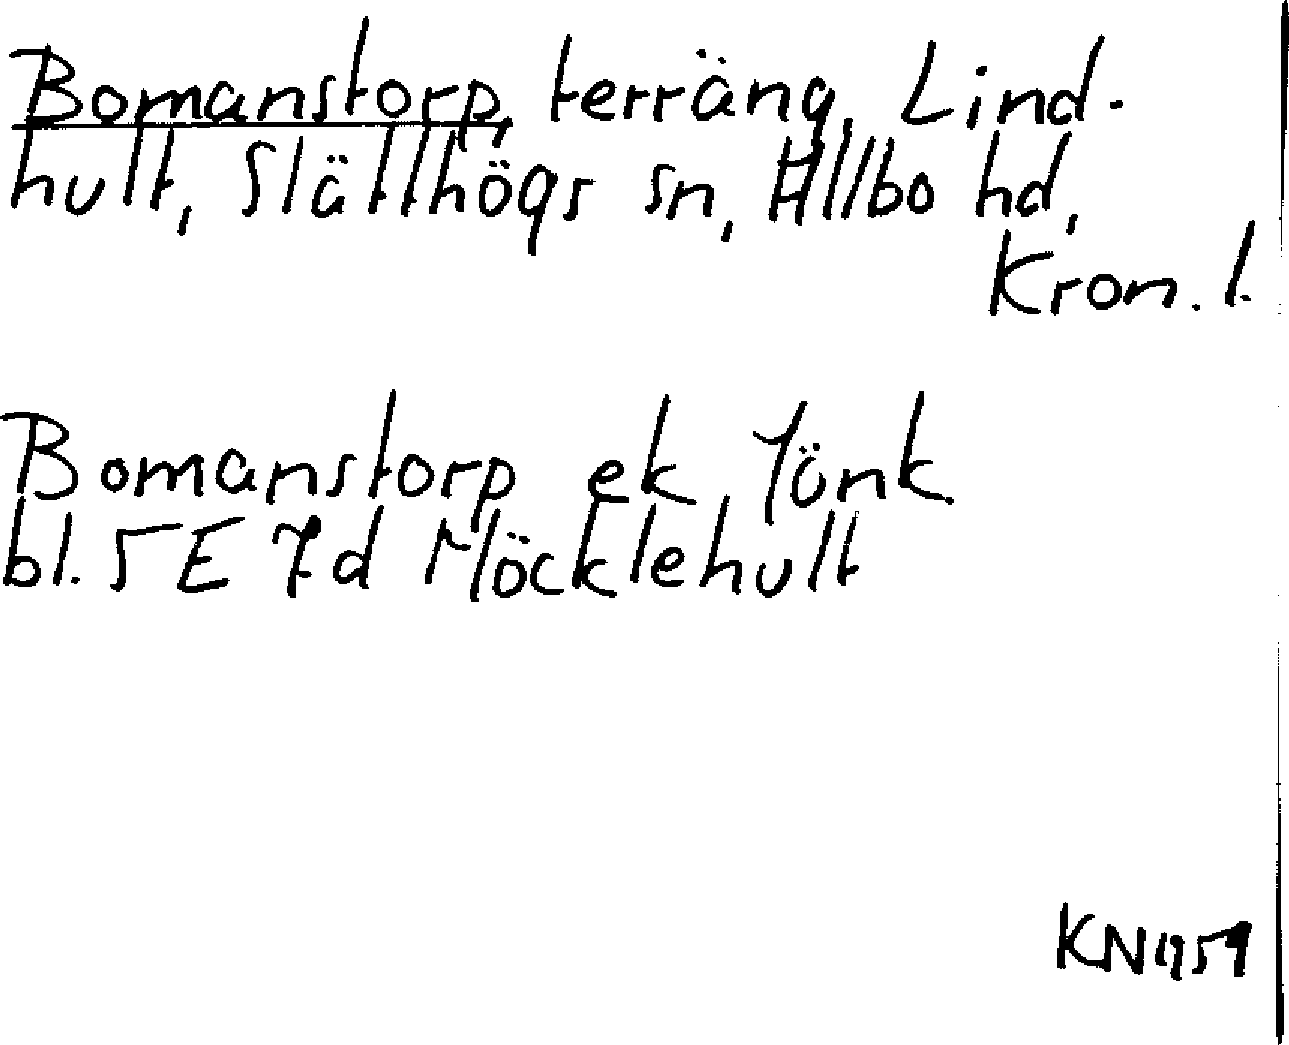 Bomanstorp, terräng, Lind-
hult, Slätthögs sn, Allbo hd,
Kron. l.
Bomanstorp ek. Jönk.
bl. 5E 7d Möcklehult